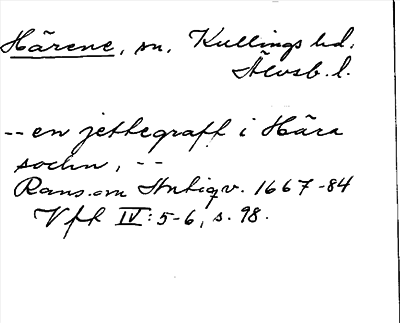 Härene, sn, Kullings hd.
Älvsb. l.
-- en jettegraff i Hära
sochn, --
Rans. om Antiqv. 1667-84
Vfh IV: 5-6, s. 98.